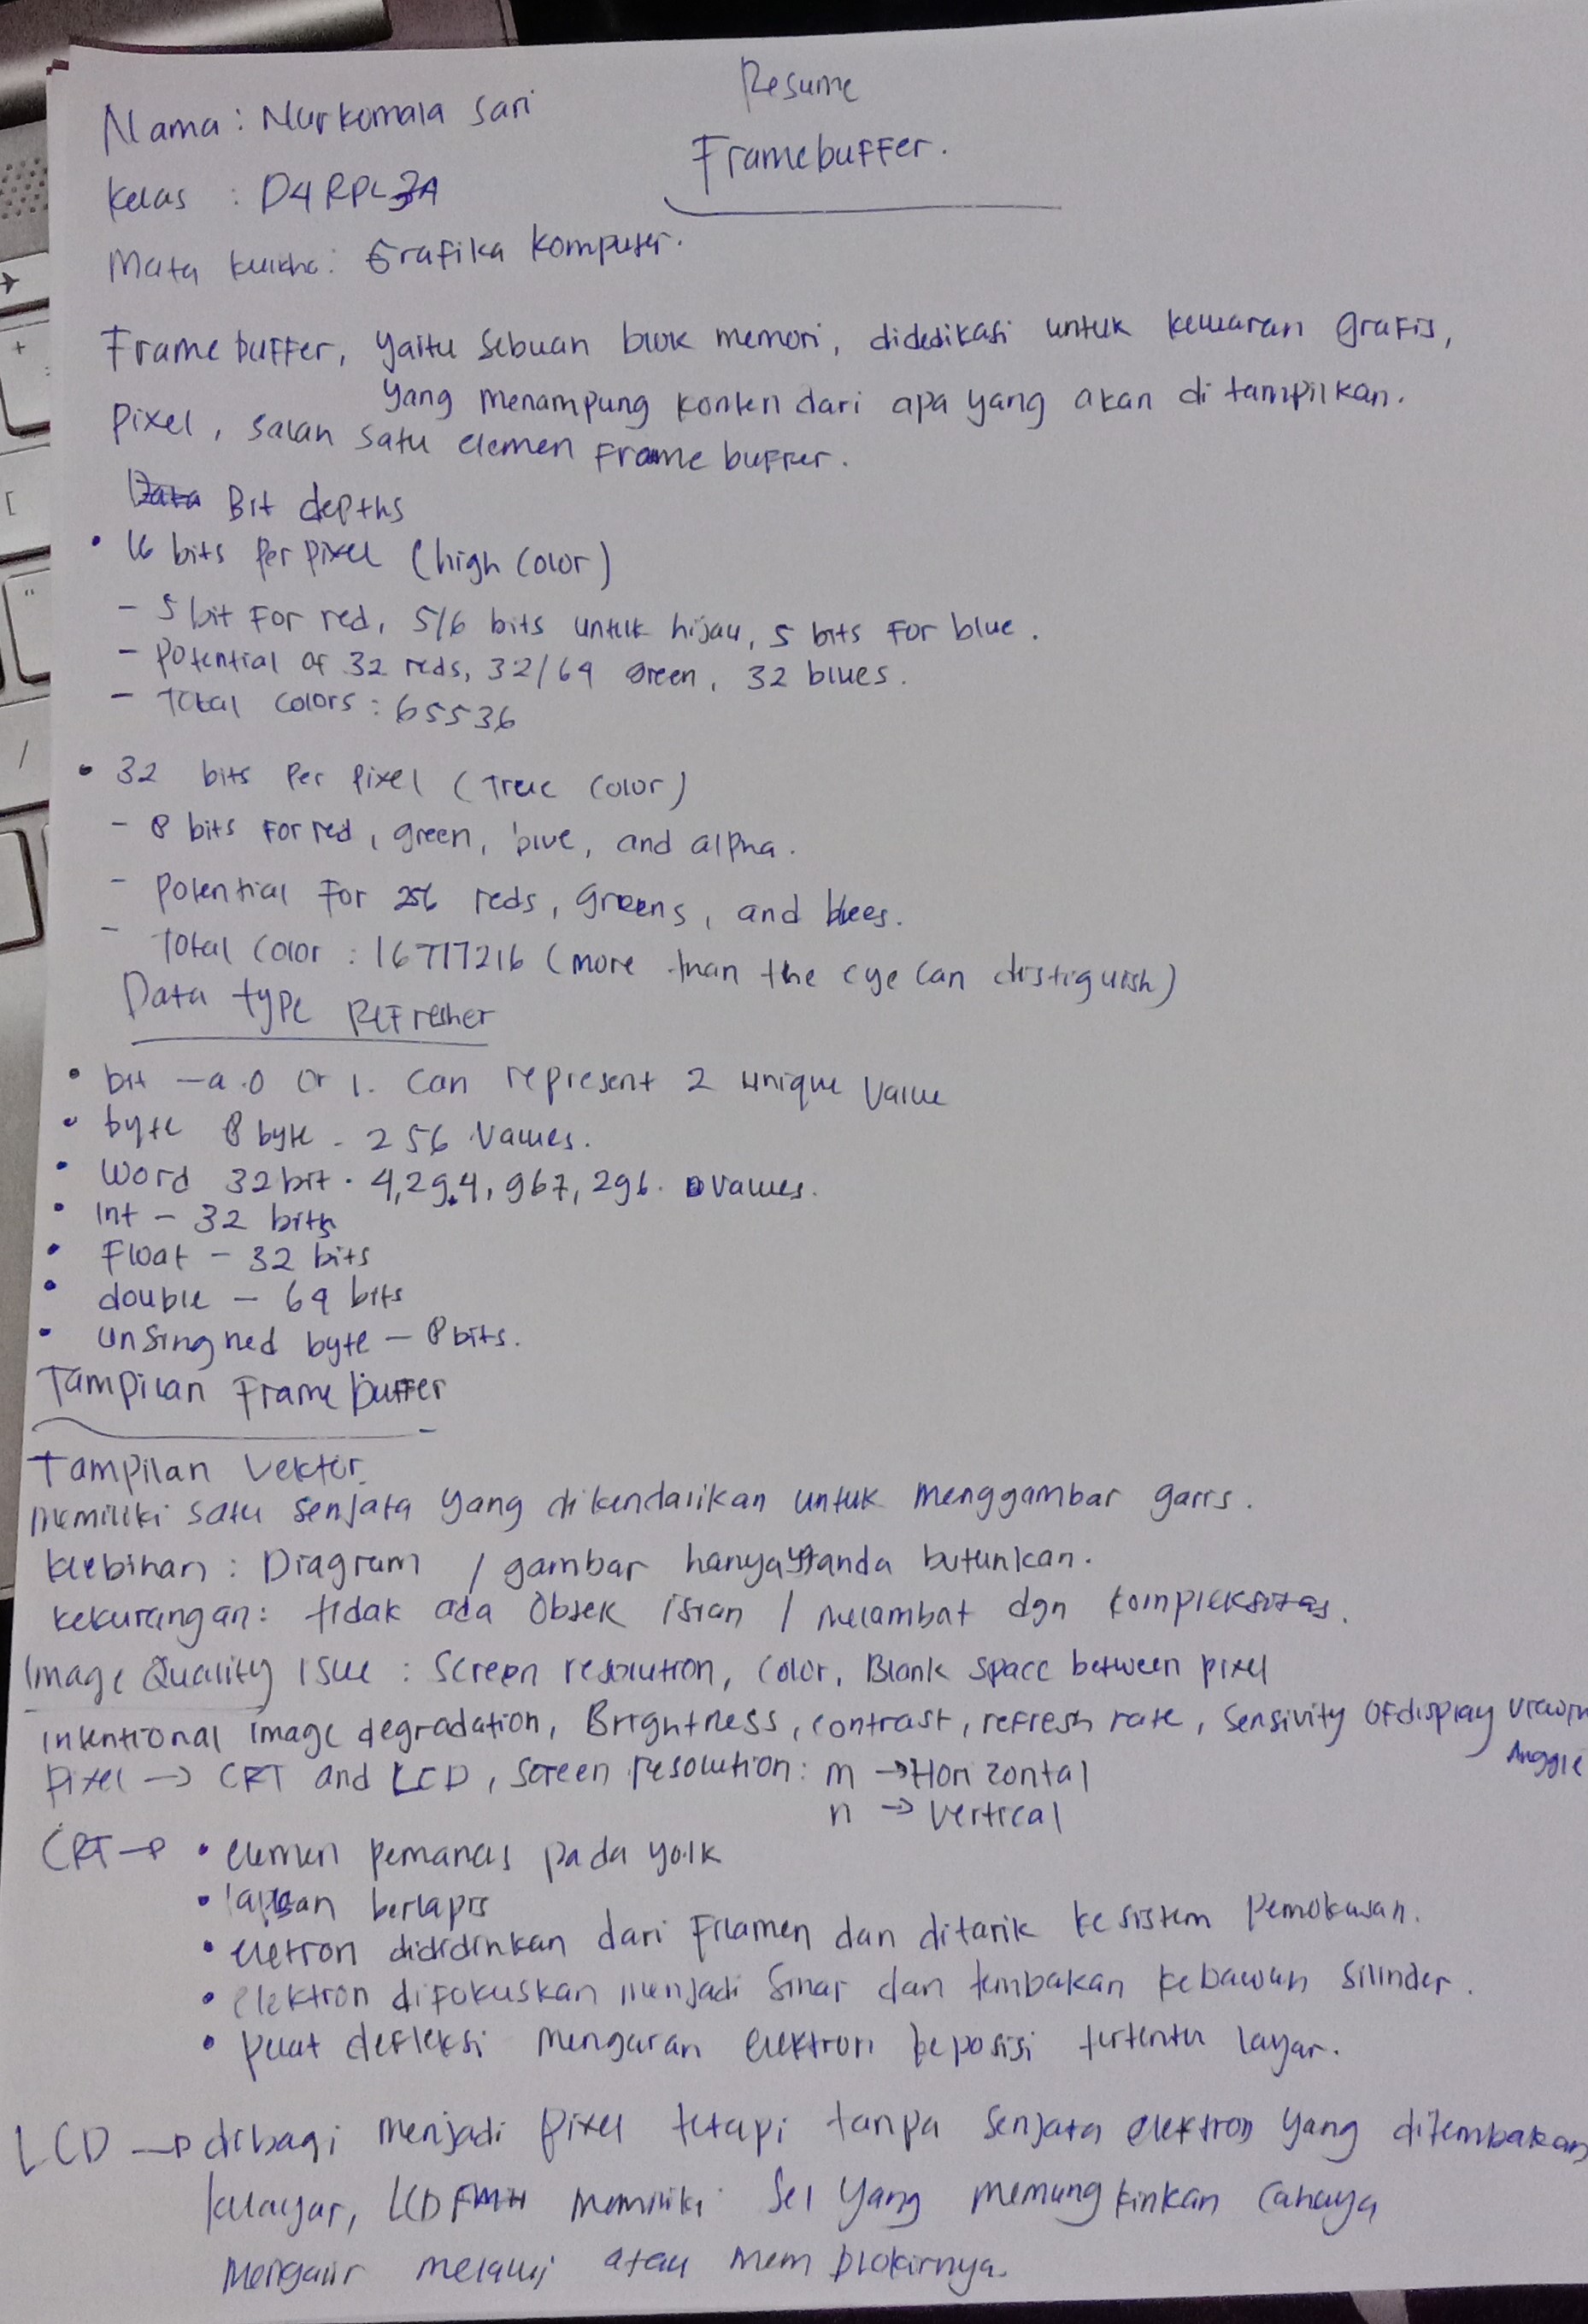 Resume
Framebuffer.
Nama : Nurkomala Sari
Kelas : D4 RPL 3A
Mata kuliha : Grafika Komputer.
Frame buffer, yaitu sebuah blok memori, didedikasi untuk keluaran grafis,
yang menampung konten dari apa yang akan di tampilkan.
Pixel, salah satu elemen Frame buffer.
Bit depths
• 16 bits per pixel (high color)
- 5 bit for red, 5/6 bits untuk hijau, 5 bits for blue.
- potential of 32 reds, 32/64 green, 32 blues.
- Total colors : 65536
• 32 bits per pixel (True color)
- 8 bits for red, green, blue, and alpha.
- potential for 256 reds, greens, and blues.
- Total color : 16777216 (more than the eye can distiguish)
Data type Refresher
• bit - a 0 or 1. can represent 2 unique value
• byte 8 byte - 256 values.
• Word 32 bit . 4,294,967,296. values.
• int - 32 bits
• Float - 32 bits
• double - 64 bits
• unsingned byte - 8 bits.
Tampilan Frame buffer
Tampilan Vektor.
memiliki satu senjata yang dikendalikan untuk menggambar garis.
kelebihan : Diagram / gambar hanya anda butuhkan.
kekurangan : tidak ada Objek isian / melambat dgn kompleksitas.
Image Quality Isue : Screen resolution, Color, Blank space between pixel
intentional image degradation, Brightness, contrast, refresh rate, Sensivity Of display viewin
Anggle
Pixel → CRT and LCD, screen resolution : m → Horizontal
n → vertical
CRT → • elemen pemanas pada yolk
• lapisan berlapis
• eletron dididihkan dari Filamen dan ditarik ke sistem pemokusan.
• elektron difokuskan menjadi sinar dan tembakan kebawah silinder.
• pelat defleksi mengarah elektron ke posisi tertentu layar.
LCD → dibagi menjadi pixel tetapi tanpa senjata elektron yang ditembakan
kelayar, LCD memiliki sel yang memungkinkan cahaya
mengalir melalui atau memblokirnya.